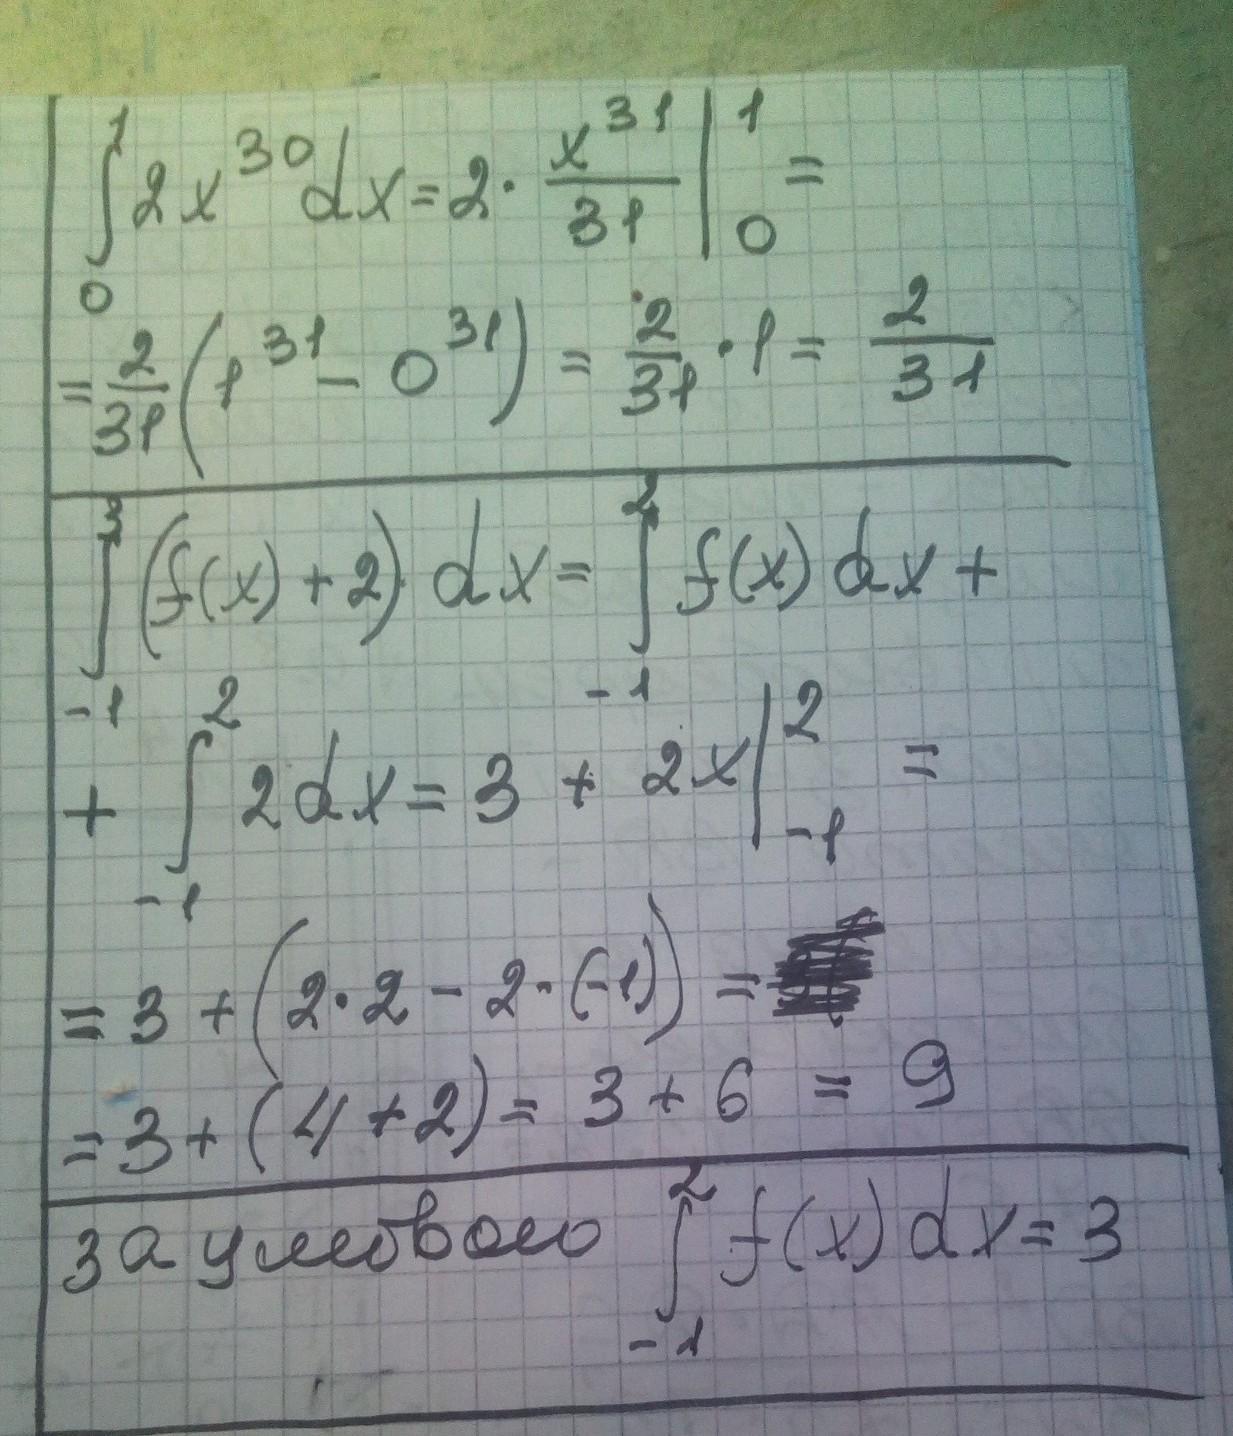 ∫₀¹ 2x³⁰dx = 2 · x³¹/31 |₀¹ =
= 2/31 (1³¹ − 0³¹) = 2/31 · 1 = 2/31
∫₋₁ (f(x) + 2) dx = ∫₋₁² f(x) dx +
+ ∫₋₁² 2dx = 3 + 2x |₋₁² =
= 3 + (2·2 − 2·(−1)) =
= 3 + (4 + 2) = 3 + 6 = 9
за умовою ∫₋₁² f(x) dx = 3